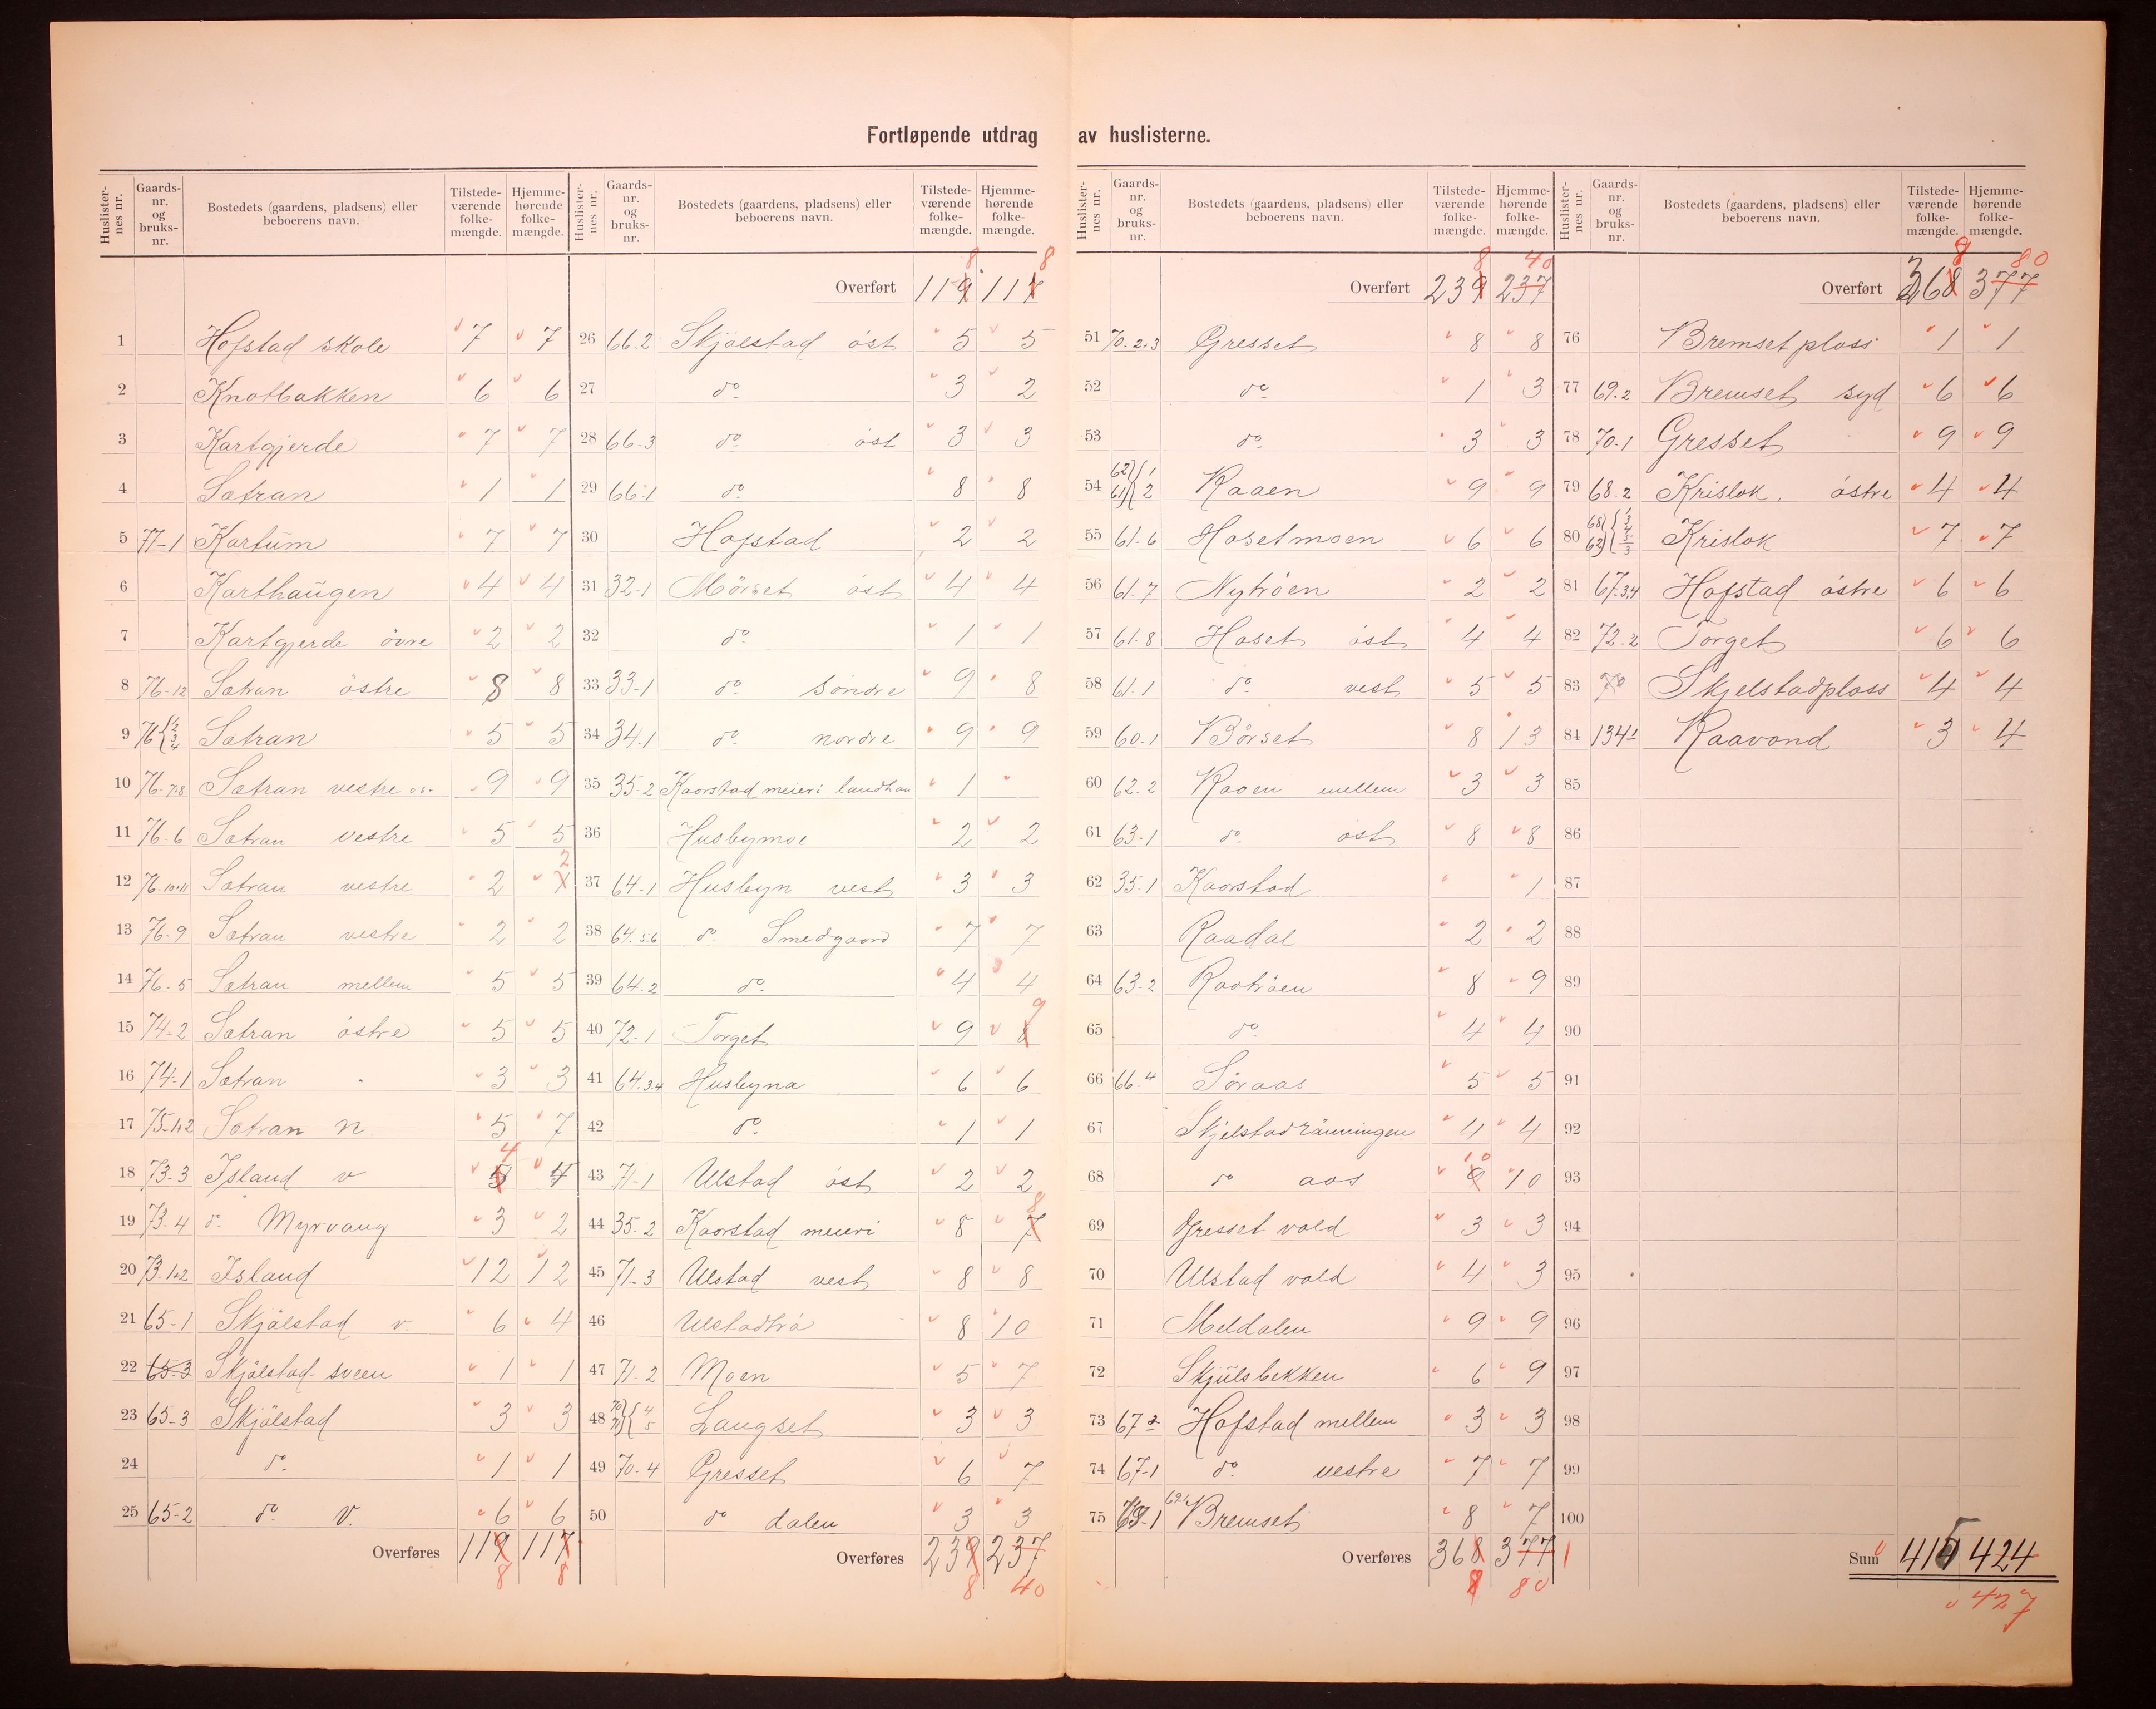 Fortløpende utdrag av huslisterne.
Huslister-nes nr. Gaards-nr. og bruks-nr. Bostedets (gaardens, pladsens) eller beboerens navn. Tilstede-værende folke-mængde. Hjemme-hørende folke-mængde.
1 Hofstad skole 7 7
2 Knotbakken 6 6
3 Kartgjerde 7 7
4 Sætran 1 1
5 77-1 Kartüm 7 7
6 Karthaügen 4 4
7 Kartgjerde övre 2 2
8 76-12 Sætran östre 8 8
9 76 {2 3 4 Sætran 5 5
10 76-7.8 Sætran vestre 9 9
11 76-6 Sætran vestre 5 5
12 76.10.11 Sætran vestre 2 2
13 76-9 Sætran vestre 2 2
14 76-5 Sætran mellem 5 5
15 74-2 Sætran östre 5 5
16 74-1 Sætran 3 3
17 75-1+2 Sætran n 5 7
18 73-3 Island v 4 4
19 73-4 do Myrvang 3 2
20 73-1+2 Island 12 12
21 65-1 Skjölstad v. 6 4
22 65-3 Skjölstad sveen 1 1
23 65-3 Skjölstad 3 3
24 do 1 1
25 65-2 do V. 6 6
Overføres 119 117
8 8
Huslister-nes nr. Gaards-nr. og bruks-nr. Bostedets (gaardens, pladsens) eller beboerens navn. Tilstede-værende folke-mængde. Hjemme-hørende folke-mængde.
8 8
Overført 119 117
26 66.2 Skjölstad öst 5 5
27 do 3 2
28 66-3 do öst 3 3
29 66-1 do 8 8
30 Hofstad 2 2
31 32-1 Mörset öst 4 4
32 do 1 1
33 33-1 do söndre 9 8
34 34.1 do nordre 9 9
35 35-2 Kaorstad meieri landhan 1
36 Husbymoe 2 2
37 64-1 Husbyn vest 3 3
38 64.5.6 do Smedgaard 7 7
39 64-2 do 4 4
9
40 72-1 Torget 9 8
41 64.3.4 Husbyna 6 6
42 do 1 1
43 71-1 Ulstad öst 2 2
8
44 35-2 Kaorstad meieri 8 7
45 71-3 Ulstad vest 8 8
46 Ulstadtrö 8 10
47 71.2 Moen 5 7
48 Langset 3 3
49 70-4 Gresset 6 7
50 do dalen 3 3
Overføres 239 237
8 40
Huslister-nes nr. Gaards-nr. og bruks-nr. Bostedets (gaardens, pladsens) eller beboerens navn. Tilstede-værende folke-mængde. Hjemme-hørende folke-mængde.
8 40
Overført 239 237
51 70.2.3 Gresset 8 8
52 do 1 3
53 do 3 3
54 62} 61} {1 2 Raaen 9 9
55 61-6 Hosetmoen 6 6
56 61-7 Nytröen 2 2
57 61.8 Hoset öst 4 4
58 61.1 do vest 5 5
59 60.1 Börset 8 13
60 62.2 Raaen mellem 3 3
61 63-1 do öst 8 8
62 35-1 Kaorstad 1
63 Raadal 2 2
64 63-2 Raatröen 8 9
65 do 4 4
66 66.4 Söraas 5 5
67 Skjelstadränningen 4 4
10
68 do aas 9 10
69 Gresset vald 3 3
70 Ulstad vald 4 3
71 Meldalen 9 9
72 Skjülsbekken 6 9
73 67-2 Hofstad mellem 3 3
74 67-1 do vestre 7 7
75 69-1 Bremset 8 7
Overføres 368 377
8 80
Huslister-nes nr. Gaards-nr. og bruks-nr. Bostedets (gaardens, pladsens) eller beboerens navn. Tilstede-værende folke-mængde. Hjemme-hørende folke-mængde.
8 80
Overført 368 377
76 Bremset plass 1 1
77 69.2 Bremset syd 6 6
78 70-1 Gresset 9 9
79 68-2 Krislok. östre 4 4
80 Krislok 7 7
81 67.3,4 Hofstad östre 6 6
82 72-2 Torget 6 6
83 Skjelstadplass 4 4
84 134.1 Raavond 3 4
85
86
87
88
89
90
91
92
93
94
95
96
97
98
99
100
Sum 415 424
427